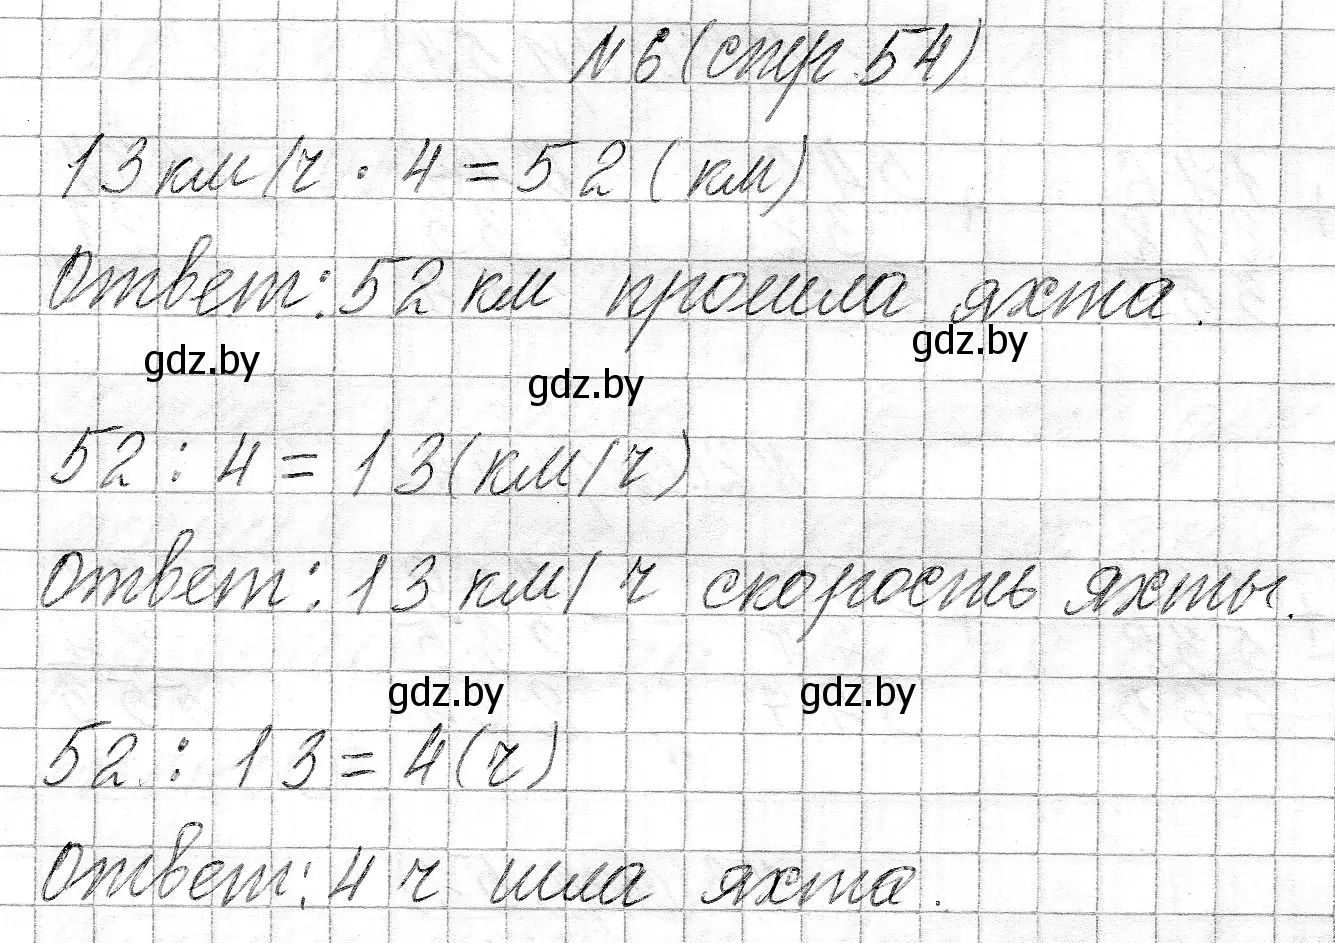 № 6 (стр. 54)
13 км/ч · 4 = 52 (км)
Ответ: 52 км прошла яхта.
gdz.by gdz.by gdz.by
52 : 4 = 13 (км/ч)
Ответ: 13 км/ч скорость яхты.
gdz.by gdz.by
52 : 13 = 4 (ч)
Ответ: 4 ч шла яхта.